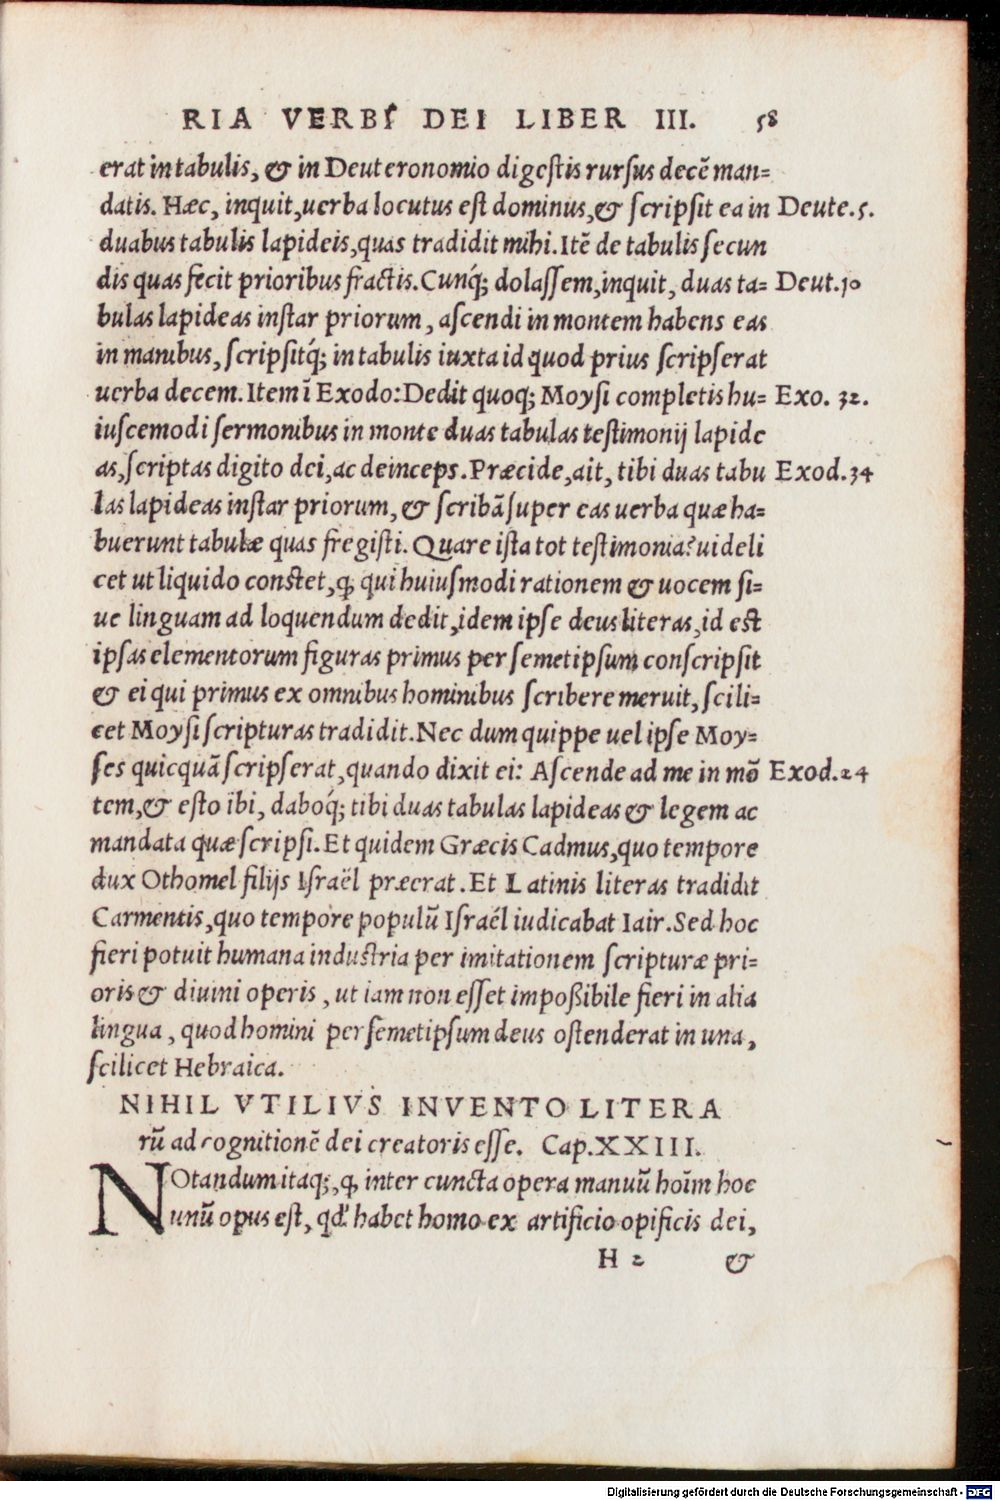 RIA VERBI DEI LIBER III. 58
erat in tabulis, & in Deuteronomio digestis rursus decē man=
datis. Hæc, inquit, uerba locutus est dominus, & scripsit ea in Deute.5.
duabus tabulis lapideis, quas tradidit mihi. Itē de tabulis secun
dis quas fecit prioribus fractis. Cunq́; dolassem, inquit, duas ta= Deut.10
bulas lapideas instar priorum, ascendi in montem habens eas
in manibus, scripsitq́; in tabulis iuxta id quod prius scripserat
uerba decem. Item ī Exodo: Dedit quoq; Moysi completis hu= Exo. 32.
iuscemodi sermonibus in monte duas tabulas testimonij lapide
as, scriptas digito dei, ac deinceps. Præcide, ait, tibi duas tabu Exod.34
las lapideas instar priorum, & scribā super eas uerba quæ ha=
buerunt tabulæ quas fregisti. Quare ista tot testimonia? uideli
cet ut liquido constet, ꝙ qui huiusmodi rationem & uocem si=
ue linguam ad loquendum dedit, idem ipse deus literas, id est
ipsas elementorum figuras primus per semetipsum conscripsit
& ei qui primus ex omnibus hominibus scribere meruit, scili=
cet Moysi scripturas tradidit. Nec dum quippe uel ipse Moy=
ses quicquā scripserat, quando dixit ei: Ascende ad me in mō Exod.24
tem, & esto ibi, daboq́; tibi duas tabulas lapideas & legem ac
mandata quæ scripsi. Et quidem Græcis Cadmus, quo tempore
dux Othomel filijs Israël præerat. Et Latinis literas tradidit
Carmentis, quo tempore populū Israël iudicabat Iair. Sed hoc
fieri potuit humana industria per imitationem scripturæ pri=
oris & diuini operis, ut iam non esset impoßibile fieri in alia
lingua, quod homini per semetipsum deus ostenderat in una,
scilicet Hebraica.
NIHIL VTILIVS INVENTO LITERA
rū ad cognitionē dei creatoris esse. Cap. XXIII.
NOtandum itaq;, ꝙ inter cuncta opera manuū hoīm hoc
unū opus est, qd' habet homo ex artificio opificis dei,
H 2 &
Digitalisierung gefördert durch die Deutsche Forschungsgemeinschaft - DFG